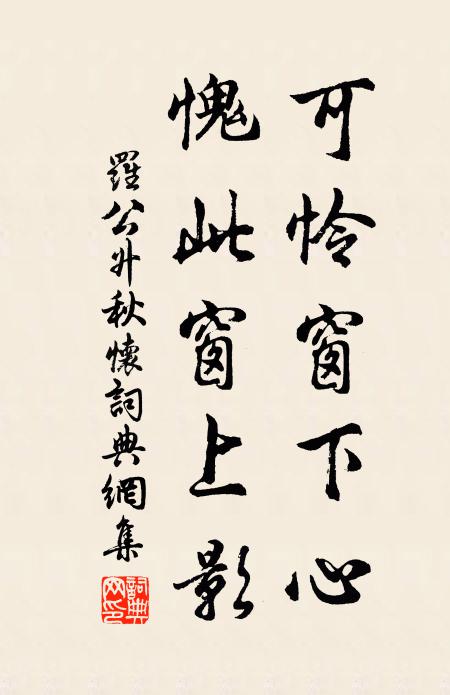 可怜窗下心
愧此窗上影
羅公升秋懷詞典網集
詞典网印